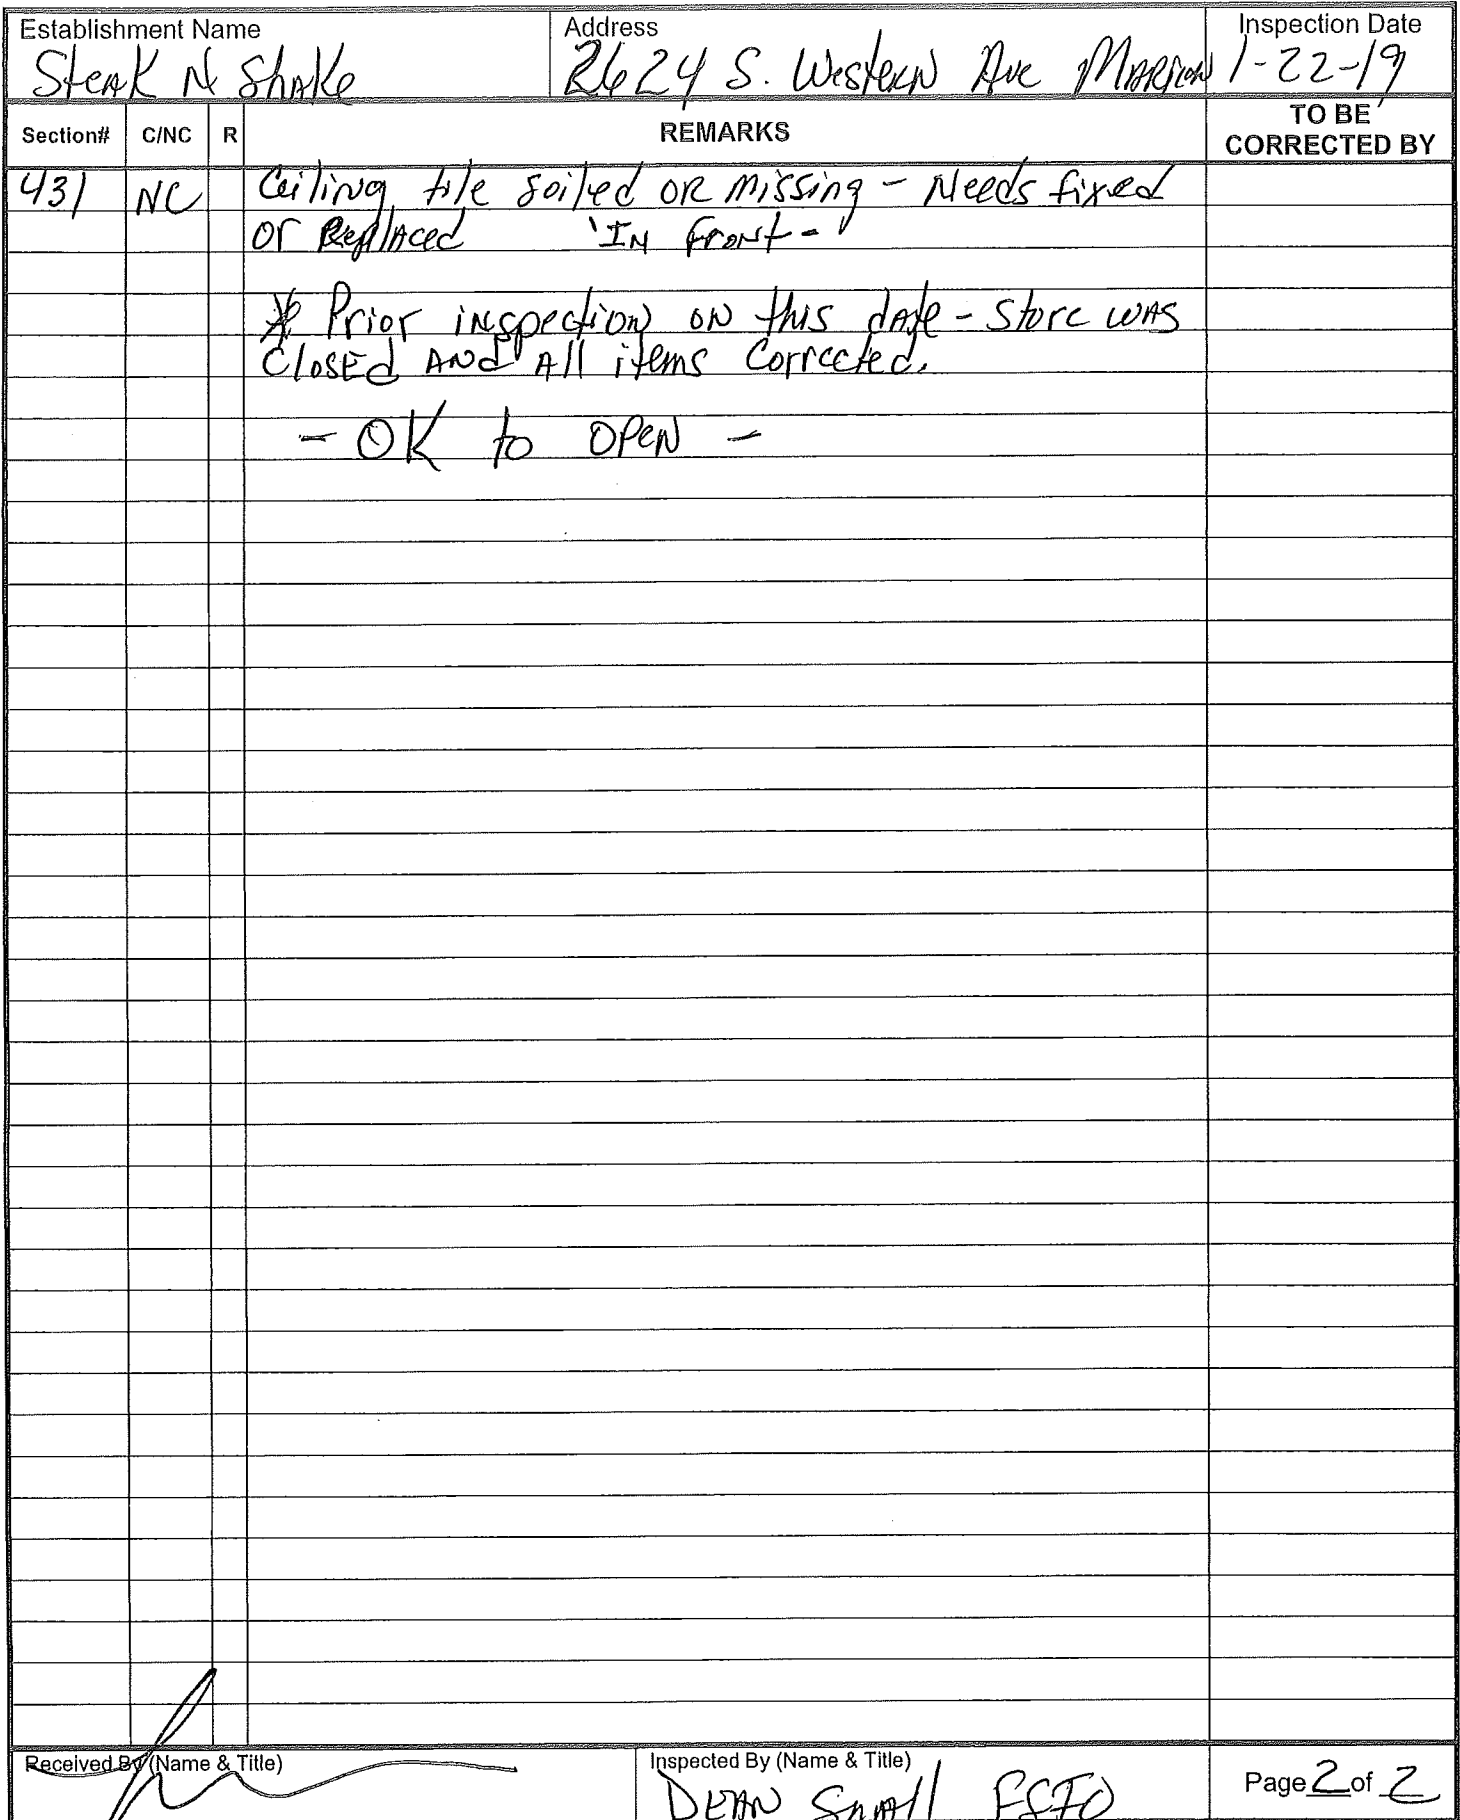 Establishment Name
Steak N Shake
Address
2624 S. Western Ave Marion
Inspection Date
1-22-19
Section# C/NC R REMARKS TO BE CORRECTED BY
431 NC Ceiling tile soiled or missing - Needs fixed
or Replaced 'In front-'
* Prior inspection on this date - Store was
Closed And All items Corrected.
- OK to OPEN -
Received By (Name & Title)
Inspected By (Name & Title)
DEAN Small
Page 2 of 2